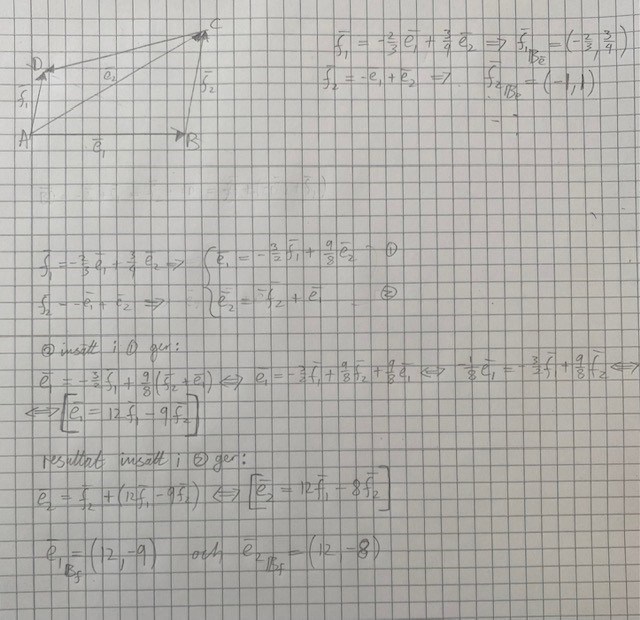 C
D
ē₂
f̄₁
f̄₂
A
B
ē₁
f̄₁ = -2/3 ē₁ + 3/4 ē₂ ⇒ f̄₁_Bₑ = (-2/3, 3/4)
f̄₂ = -e₁ + ē₂ ⇒ f̄₂_Bₑ = (-1, 1)
f̄₁ = -2/3 ē₁ + 3/4 ē₂ ⇒ { ē₁ = -3/2 f̄₁ + 9/8 ē₂ ①
f₂ = -ē₁ + ē₂ ⇒ { ē₂ = f̄₂ + ē ②
② insatt i ① ger:
ē₁ = -3/2 f̄₁ + 9/8 (f̄₂ + ē₁) ⇔ e₁ = -3/2 f̄₁ + 9/8 f̄₂ + 9/8 ē₁ ⇔ -1/8 ē₁ = -3/2 f̄₁ + 9/8 f̄₂ ⇔
⇔ [ē₁ = 12f̄₁ - 9f₂]
resultat insatt i ② ger:
ē₂ = f̄₂ + (12f̄₁ - 9f̄₂) ⇔ [ē₂ = 12f̄₁ - 8f̄₂]
ē₁_B_f = (12, -9) och ē₂_B_f = (12 -8)